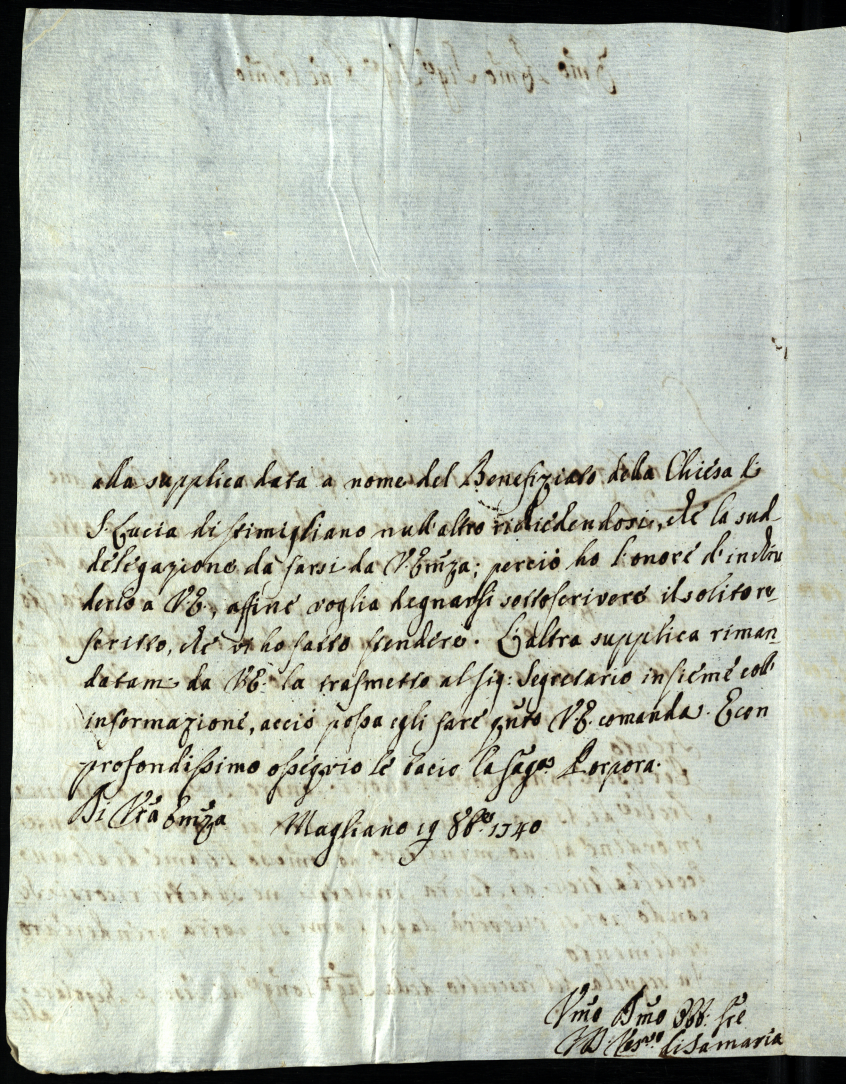 alla supplica data a nome del Benefiziato della Chiesa di
S. Lucia di Stimigliano null'altro richiedendosi, che la sud
delegazione da farsi da V. Emza; perciò ho l'onore d'inchiu
derlo a VE., affine voglia degnarsi sottoscrivere il solito re
scritto, che vi ho fatto stendere. L'altra supplica riman
datami da VE. la trasmetto al sig: Segretario insieme coll'
informazione, acciò possa egli fare qnto VE. comanda. E con
profondissimo ossequio le bacio la Sagra Porpora.
Di Vra Emza Magliano 19 8bre 1740
Vmo Dmo Obb: